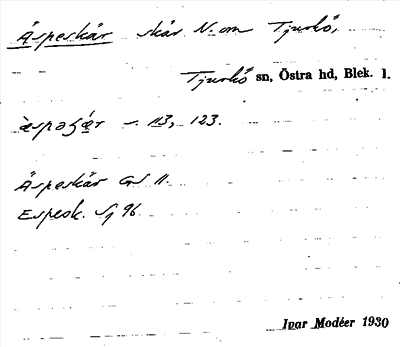 Äspeskär skär N. om Tjurkö,
Tjurkö sn, Östra hd, Blek. l.
113, 123.
Äspeskär GS 11.
Espesk. Sj 96
Ivar Modéer 1930